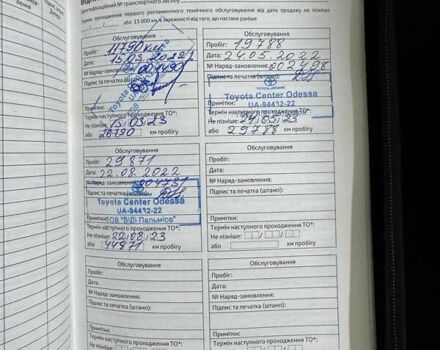 Ідентифікаційний № транспортного засобу
Термін проходження першого регламентного технічного обслуговування від дати продажу не пізніше
або 15 000 км в залежності від того, що настане раніше
Обслуговування
Пробіг: 11790 км
Дата: 15.03.2022
№ Наряд-замовлення:
Підпис та печатка (штамп):
Примітки:
Термін наступного проходження ТО*:
Не пізніше: 15.03.23
або 26790 км пробігу
Обслуговування
Пробіг: 19788
Дата: 24.05.2022
№ Наряд-замовлення: 002498
Підпис та печатка (штамп):
Toyota Center Odessa
UA-94412-22
Примітки:
Термін наступного проходження ТО*:
Не пізніше: 24.05.23
або 29788 км пробігу
Обслуговування
Пробіг: 29871
Дата: 22.08.2022
№ Наряд-замовлення: 004731
Підпис та печатка (штамп):
Toyota Center Odessa
UA-94412-22
ТОВ "ВіДі Пальміра"
Примітки:
Термін наступного проходження ТО*:
Не пізніше: 22.08.23
або 44871 км пробігу
Обслуговування
Пробіг:
Дата:
№ Наряд-замовлення:
Підпис та печатка (штамп):
Примітки:
Термін наступного проходження ТО*:
Не пізніше:
або км пробігу
Обслуговування
Пробіг:
Дата:
№ Наряд-замовлення:
Підпис та печатка (штамп):
Примітки:
Термін наступного проходження ТО*:
Обслуговування
Пробіг:
Дата:
№ Наряд-замовлення:
Підпис та печатка (штамп):
Примітки:
Термін наступного проходження ТО*:
Не пізніше: